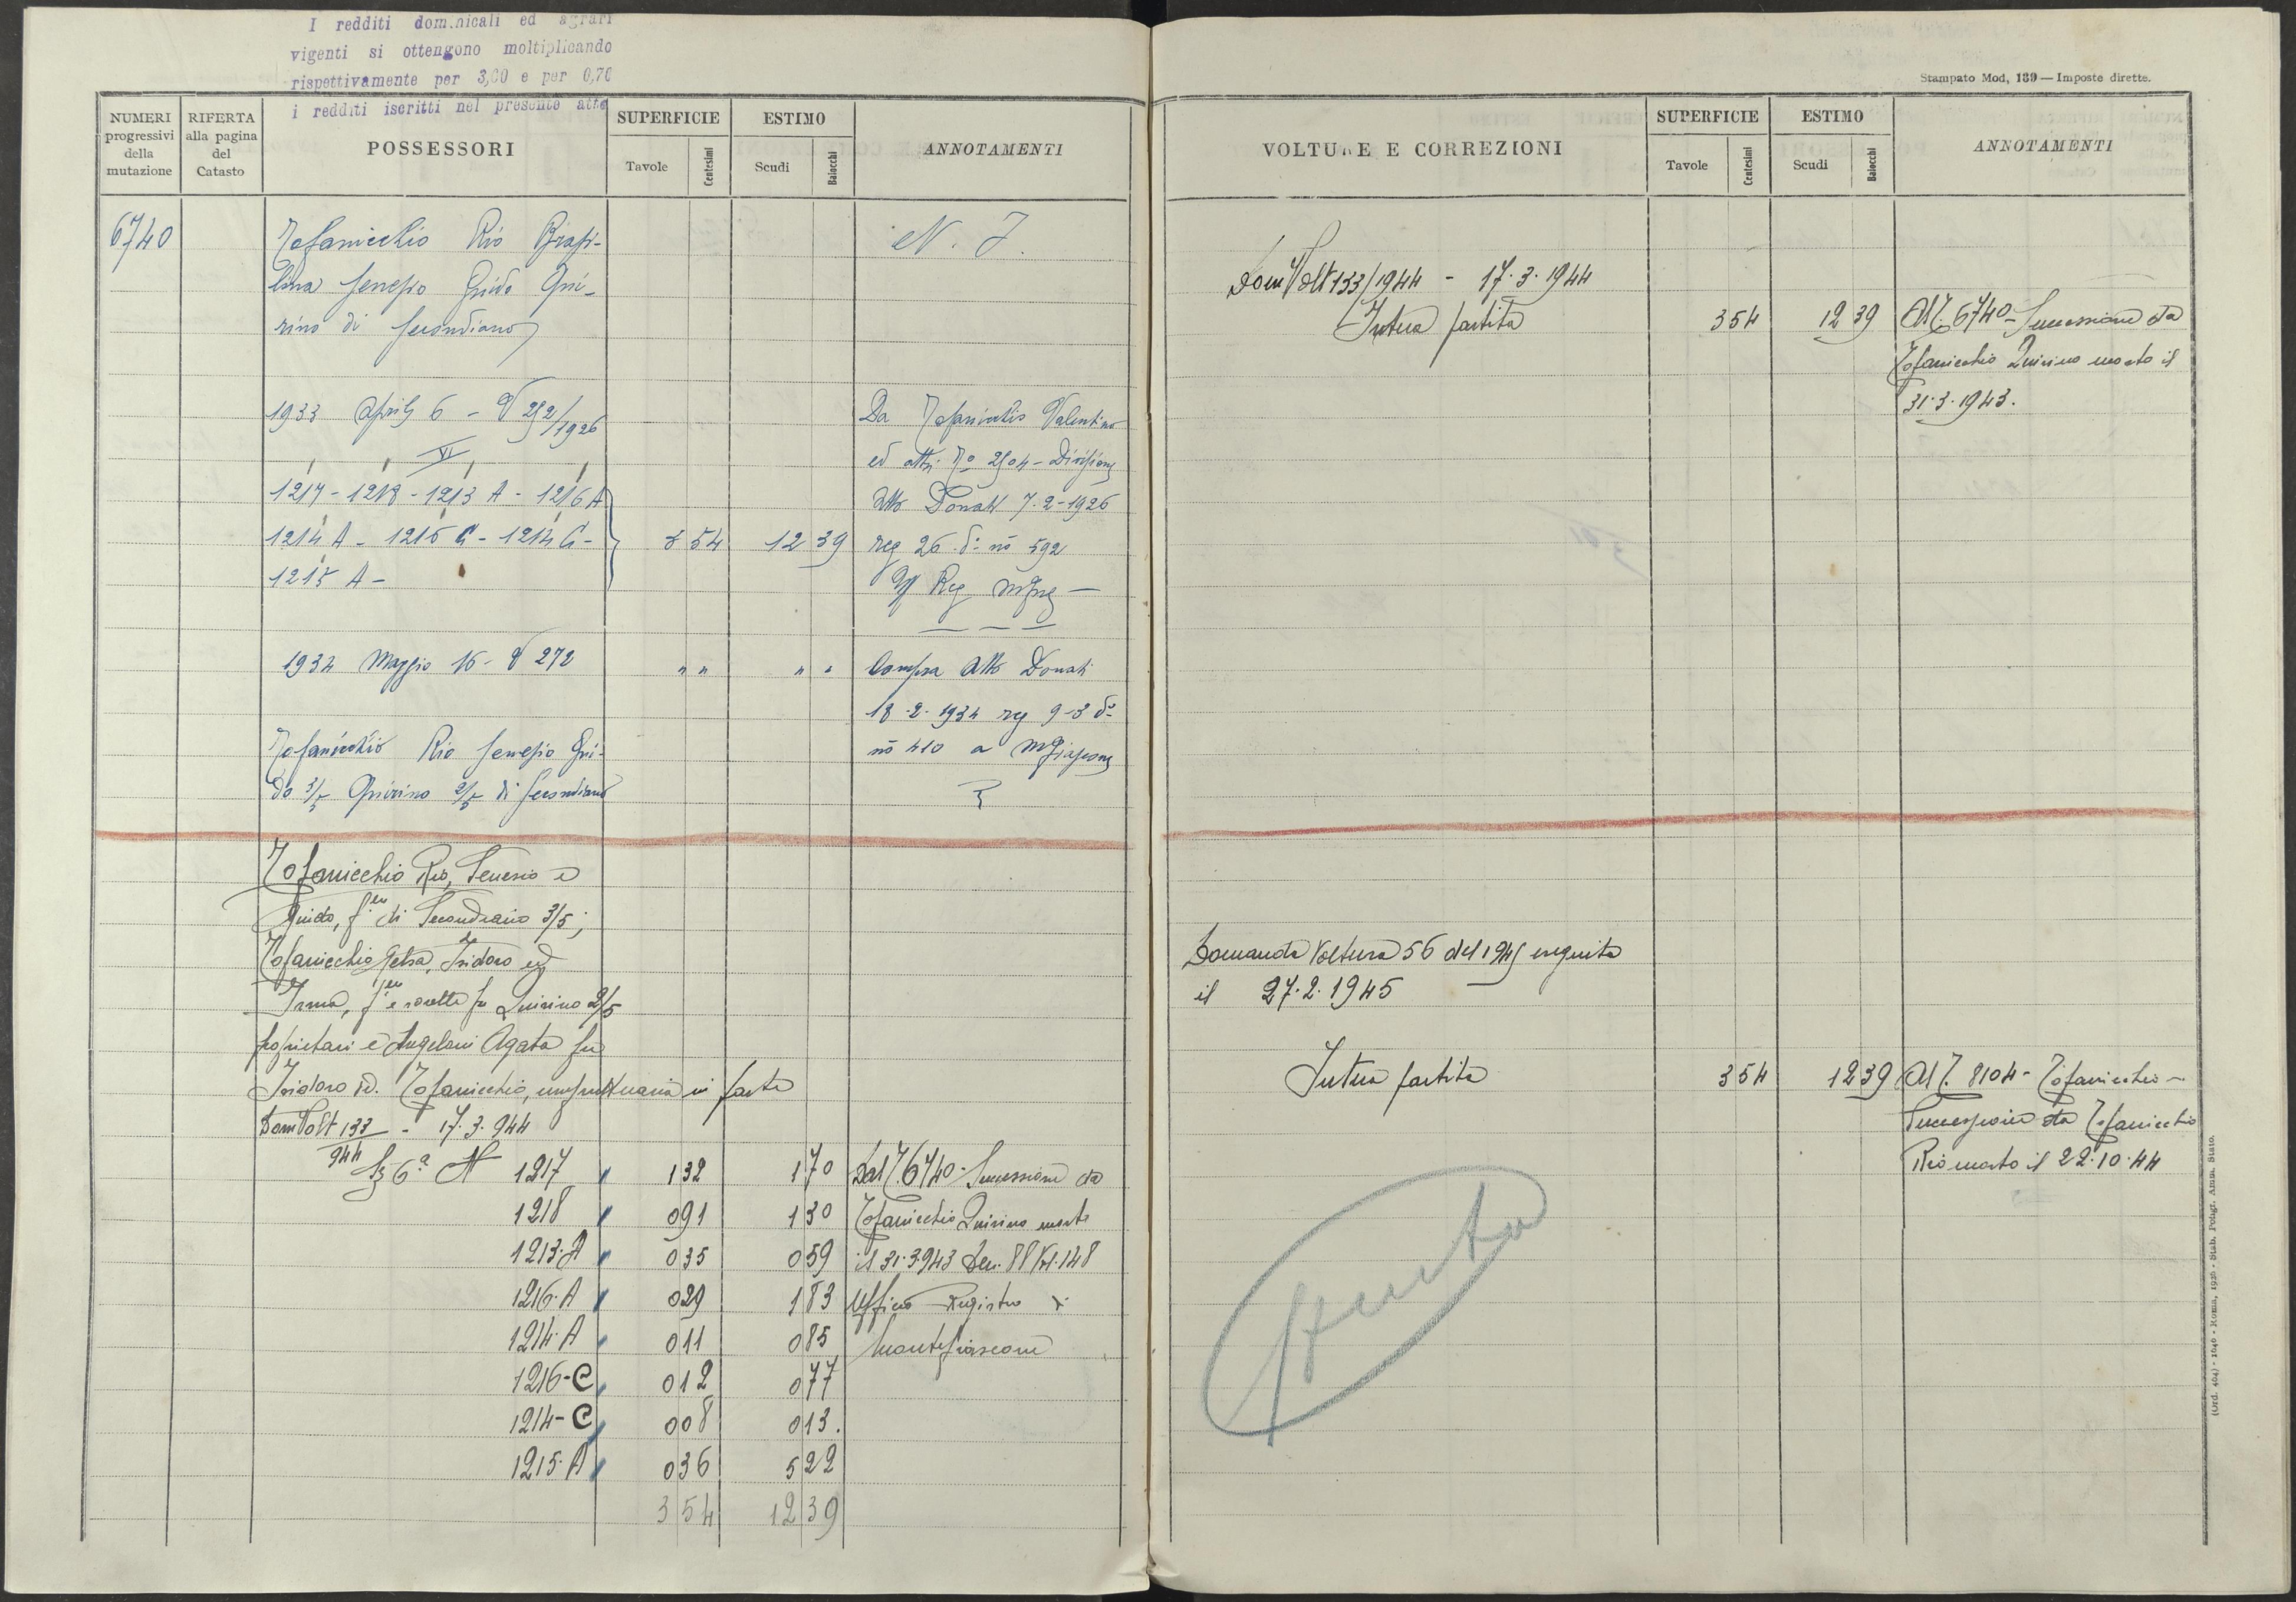 I redditi dominicali ed agrari
vigenti si ottengono moltiplicando
rispettivamente per 3,00 e per 0,70
i redditi iscritti nel presente atto
NUMERI progressivi della mutazione
RIFERTA alla pagina del Catasto
POSSESSORI
SUPERFICIE
Tavole Centesimi
ESTIMO
Scudi Baiocchi
ANNOTAMENTI
6740
Tofanicchio Rio
Senesio Guido Qui-
rino di Secondiano
N. T.
1933 Aprile 6 - V 292/1926
VI
1217 - 1218 - 1213 A - 1216 A
1214 A - 1215 C - 1214 C -
1215 A -
3 54 12 39
Da Tofanicchio Valentino
ed altri To 2504 - Divisione
Atto Donati 7-2-1926
reg 26 do no 592
Uff Reg
1934 Maggio 16 - V 272
" " " "
Compra Atto Donati
18-2-1934 reg 9-3 do
no 410 a
Tofanicchio Rio Senesio Gui-
do 3/5 Quirino 2/5 di Secondiano
Tofanicchio Rio, Senesio e
Guido, f.lli di Secondiano 3/5;
Tofanicchio Isidoro ed
Irma, f.lli e sorelle fu Quirino 2/5
proprietari e Angeloni Agata fu
Isidoro ved. Tofanicchio, usufruttuaria in parte
Dom Volt 133/944 - 17.3.944
Sz 6a N 1217 1 32 1 70 Dal T. 6740 - Successione da
1218 0 91 1 30 Tofanicchio Quirino morto
1213-A 0 35 0 59 il 31.3.943 Den. 88 Vol. 148
1216-A 0 29 1 83 Ufficio Registro di
1214-A 0 11 0 85 Montefiascone
1216-C 0 12 0 77
1214-C 0 08 0 13.
1215-A 0 36 5 22
3 54 12 39
Stampato Mod, 139 — Imposte dirette.
VOLTURE E CORREZIONI
SUPERFICIE
Tavole Centesimi
ESTIMO
Scudi Baiocchi
ANNOTAMENTI
Dom Volt 133/1944 - 17.3.1944
Intera partita 3 54 12 39 Al T. 6740 - Successione da
Tofanicchio Quirino morto il
31.3.1943.
Domanda Voltura 56 del 1945 eseguita
il 27.2.1945
Intera partita 3 54 12 39 Al T. 8104 - Tofanicchio -
Successione da Tofanicchio
Rio morto il 22.10.44
Spenta
(Ord. 404) - 1646 - Roma, 1936 - Stab. Poligr. Amm. Stato.